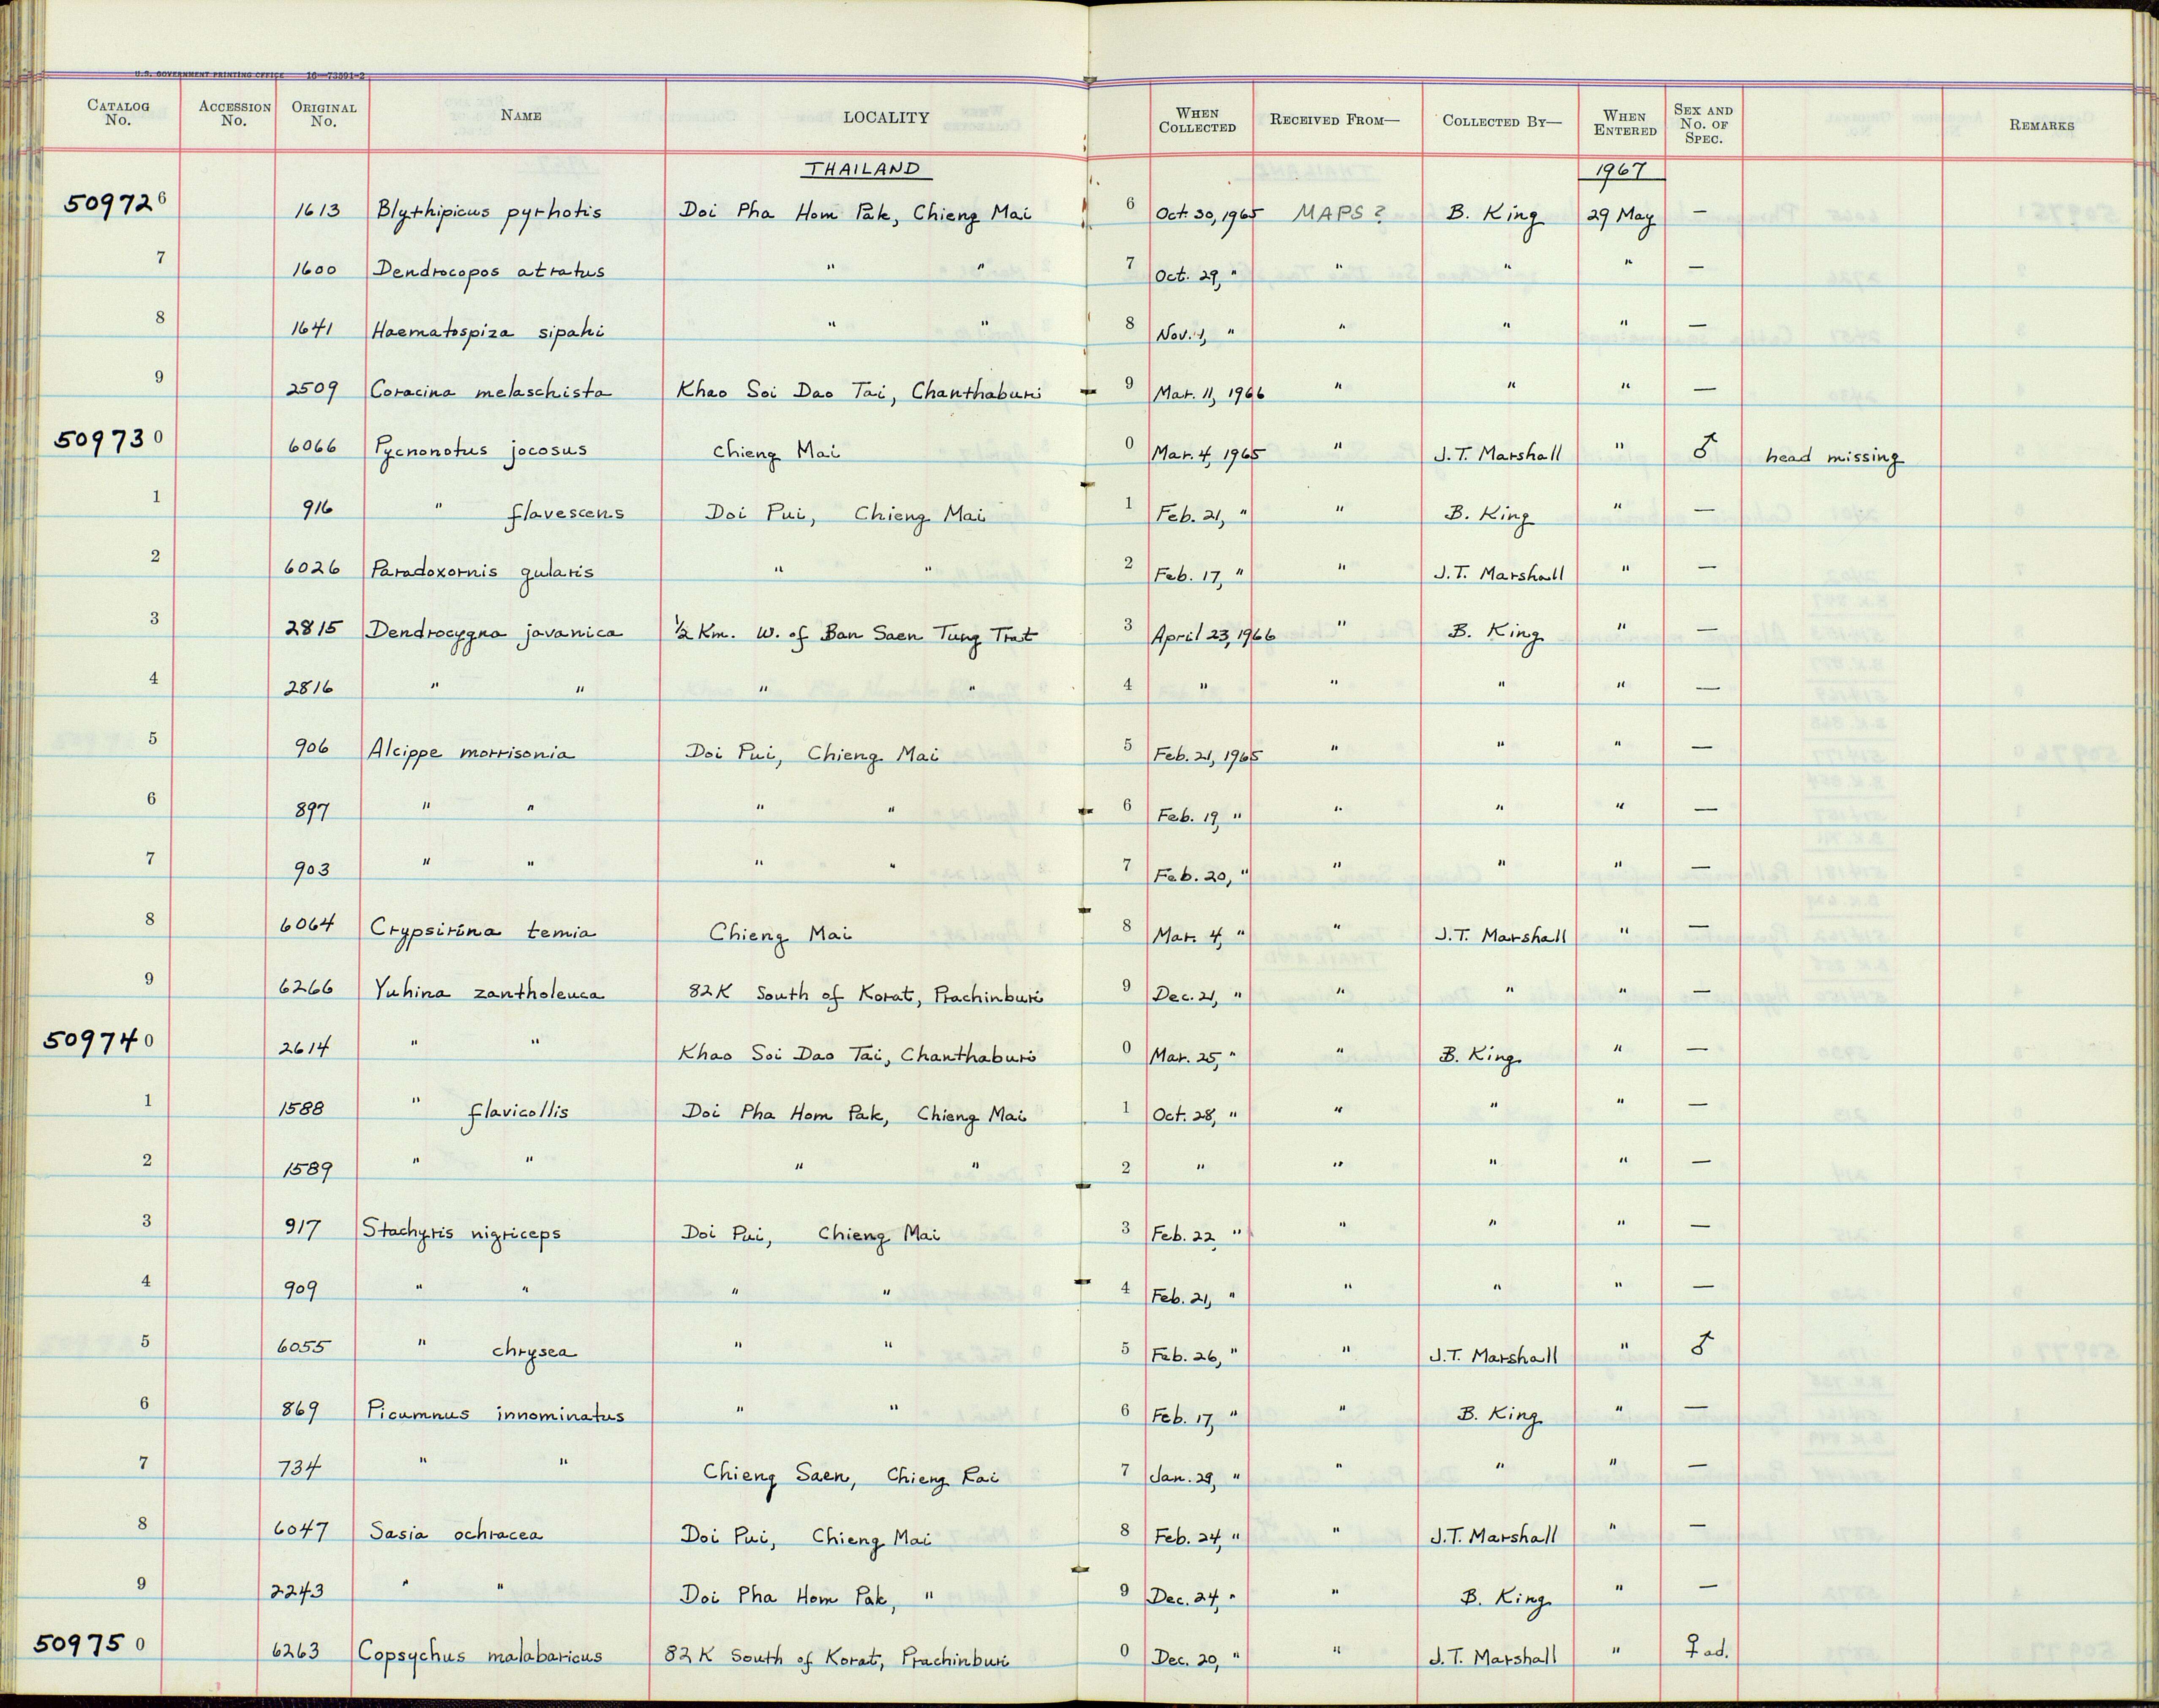 U.S. GOVERNMENT PRINTING OFFICE 16—73891-2
CATALOG No. ACCESSION No. ORIGINAL No. NAME LOCALITY WHEN COLLECTED RECEIVED FROM— COLLECTED BY— WHEN ENTERED SEX AND No. OF SPEC. REMARKS
THAILAND 1967
509726 1613 Blythipicus pyrhotis Doi Pha Hom Pak, Chieng Mai 6 Oct. 30, 1965 MAPS? B. King 29 May —
7 1600 Dendrocopos atratus " " 7 Oct. 29, " " " " —
8 1641 Haematospiza sipahi " " 8 Nov. 1, " " " " —
9 2509 Coracina melaschista Khao Soi Dao Tai, Chanthaburi 9 Mar. 11, 1966 " " " —
509730 6066 Pycnonotus jocosus Chieng Mai 0 Mar. 4, 1965 " J.T. Marshall " ♂ head missing
1 916 " flavescens Doi Pui, Chieng Mai 1 Feb. 21, " " B. King " —
2 6026 Paradoxornis gularis " " 2 Feb. 17, " " J.T. Marshall " —
3 2815 Dendrocygna javanica ½ Km. W. of Ban Saen Tung Trat 3 April 23, 1966 " B. King " —
4 2816 " " " " 4 " " " " —
5 906 Alcippe morrisonia Doi Pui, Chieng Mai 5 Feb. 21, 1965 " " " —
6 897 " " " " 6 Feb. 19, " " " " —
7 903 " " " " 7 Feb. 20, " " " " —
8 6064 Crypsirina temia Chieng Mai 8 Mar. 4, " " J.T. Marshall " —
9 6266 Yuhina zantholeuca 82K South of Korat, Prachinburi 9 Dec. 21, " " " " —
509740 2614 " " Khao Soi Dao Tai, Chanthaburi 0 Mar. 25, " " B. King " —
1 1588 " flavicollis Doi Pha Hom Pak, Chieng Mai 1 Oct. 28, " " " " —
2 1589 " " " " 2 " " " " —
3 917 Stachyris nigriceps Doi Pui, Chieng Mai 3 Feb. 22, " " " " —
4 909 " " " " 4 Feb. 21, " " " " —
5 6055 " chrysea " " 5 Feb. 26, " " J.T. Marshall " ♂
6 869 Picumnus innominatus " " 6 Feb. 17, " " B. King " —
7 734 " " Chieng Saen, Chieng Rai 7 Jan. 29, " " " " —
8 6047 Sasia ochracea Doi Pui, Chieng Mai 8 Feb. 24, " " J.T. Marshall " —
9 2243 " " Doi Pha Hom Pak, " 9 Dec. 24, " " B. King " —
509750 6263 Copsychus malabaricus 82K South of Korat, Prachinburi 0 Dec. 20, " " J.T. Marshall " ♀ ad.